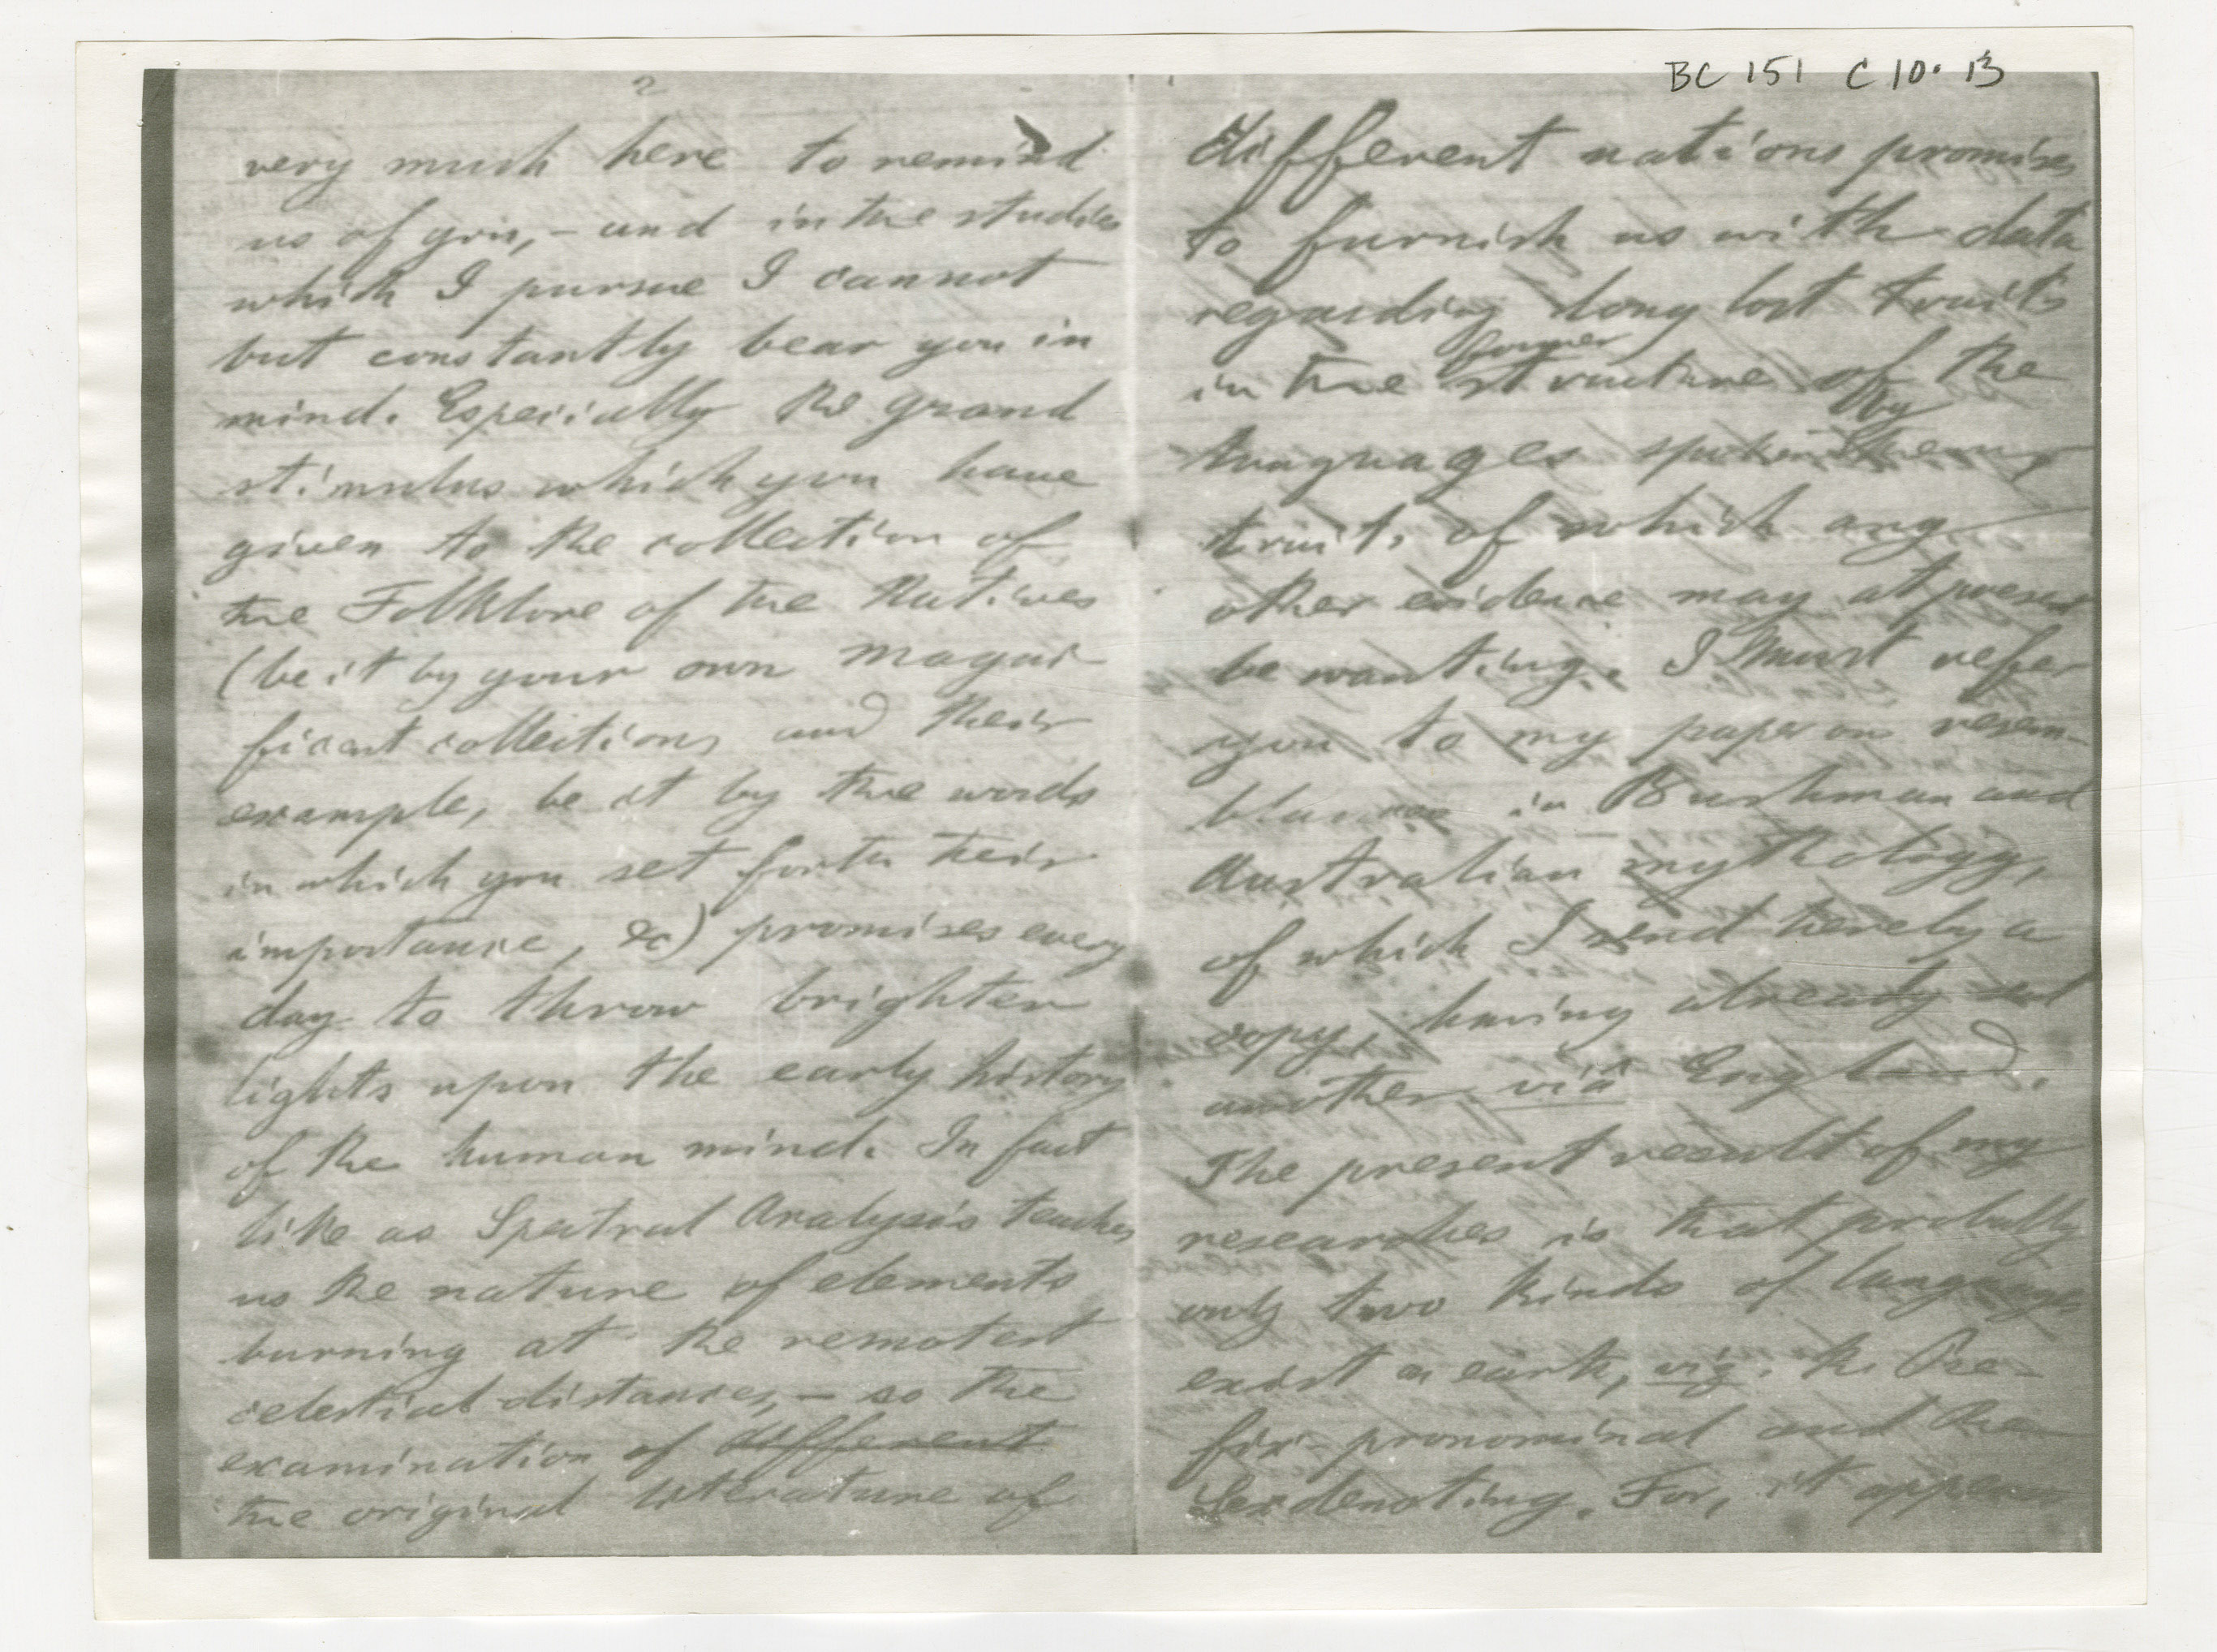 BC 151 C 10. 13
2
very much here to remind
us of you, – and in the studies
which I pursue I cannot
but constantly bear you in
mind. Especially the grand
stimulus which you have
given to the collection of
the Folklore of the Natives
(be it by your own magni-
ficent collections and their
example, be it by the words
in which you set forth their
importance, &c) promises every
day to throw brighter
lights upon the early history
of the human mind. In fact
like as Spectral Analysis teaches
us the nature of elements
burning at the remotest
celestial distances, – so the
examination of different
the original literature of
different nations promises
to furnish us with data
regarding long lost traits
former
in the structure of the
by
languages spoken them,
traits of which any
other evidence may at present
be wanting. I must refer
you to my paper on resem-
blances in Bushman and
Australian mythology,
of which I send hereby a
copy, having already sent
another viâ England.
The present result of my
researches is that probably
only two kinds of languages
exist on earth, viz. the Pre-
fix-pronominal and the
Sex denoting. For, it appears